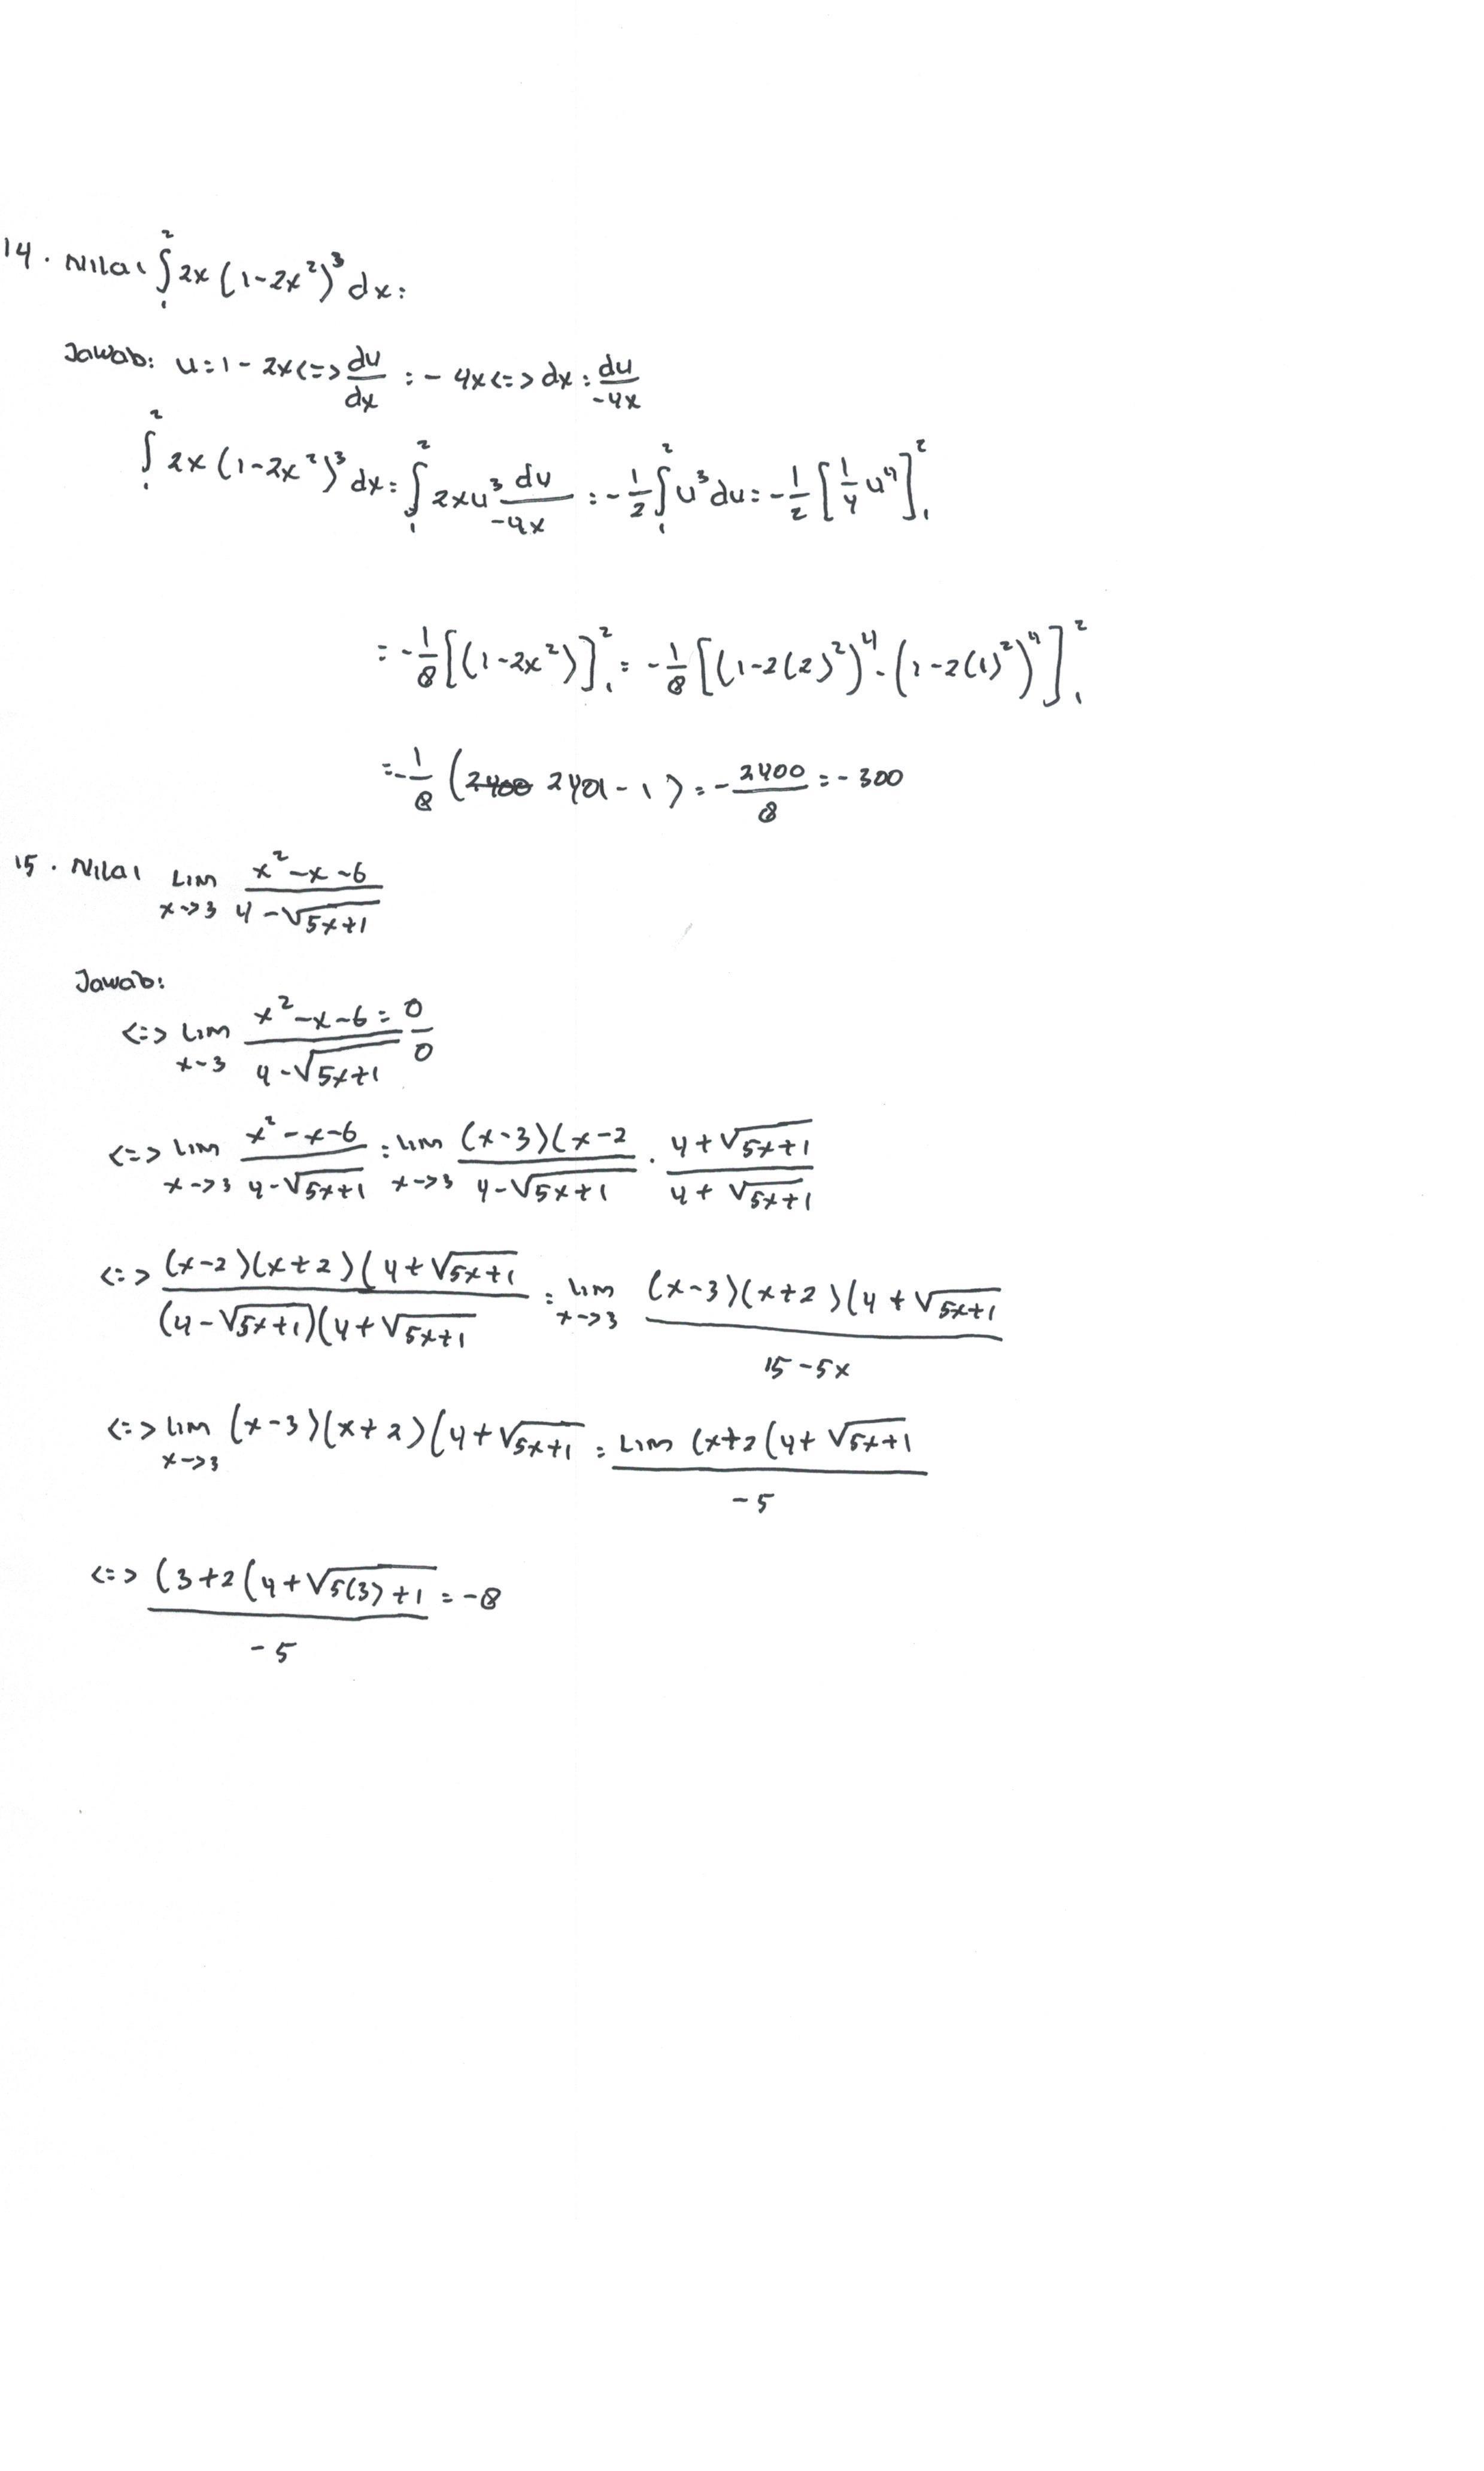 14. Nilai ∫₁² 2x (1-2x²)³ dx =
Jawab: u = 1 - 2x <=> du/dx = - 4x <=> dx = du/-4x
∫₁² 2x (1-2x²)³ dx = ∫₁² 2xu³ du/-4x = - 1/2 ∫₁² u³ du = - 1/2 [1/4 u⁴]₁²
= - 1/8 [(1-2x²)]₁² = - 1/8 [(1-2(2)²)⁴ - (1-2(1)²)⁴]₁²
= - 1/8 (2400 2401 - 1) = - 2400/8 = - 300
15. Nilai Lim x->3 x²-x-6 / 4-√5x+1
Jawab:
<=> Lim x-3 x²-x-6 / 4-√5x+1 = 0/0
<=> Lim x->3 x²-x-6 / 4-√5x+1 = Lim x->3 (x-3)(x-2 / 4-√5x+1 . 4+√5x+1 / 4+√5x+1
<=> (x-2)(x+2)(4+√5x+1 / (4-√5x+1)(4+√5x+1 = lim x->3 (x-3)(x+2)(4+√5x+1 / 15-5x
<=> Lim x->3 (x-3)(x+2)(4+√5x+1 = Lim (x+2(4+√5x+1 / -5
<=> (3+2(4+√5(3)+1 / -5 = -8